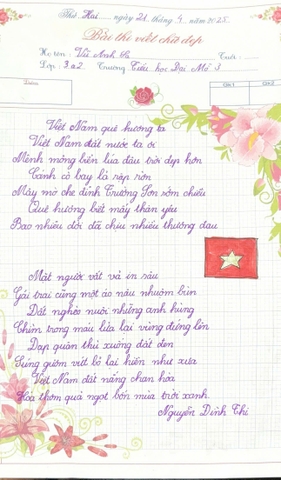 Thứ Hai ngày 21 tháng 4 năm 2025
Bài thi viết chữ đẹp
Họ tên: Vũ Anh Tuổi:
Lớp: 3a2 Trường Tiểu học Đại Mỗ 3
Việt Nam quê hương ta
Việt Nam đất nước ta ơi
Mênh mông biển lúa đâu trời đẹp hơn
Cánh cò bay lả rập rờn
Mây mờ che đỉnh Trường Sơn sớm chiều
Quê hương biết mấy thân yêu
Bao nhiêu đời đã chịu nhiều thương đau
Mặt người vất vả in sâu
Gái trai cũng một áo nâu nhuộm bùn
Đất nghèo nuôi những anh hùng
Chìm trong máu lửa lại vùng đứng lên
Đạp quân thù xuống đất đen
Súng gươm vứt bỏ lại hiền như xưa
Việt Nam đất nắng chan hòa
Hoa thơm quả ngọt bốn mùa trời xanh.
Nguyễn Đình Thi